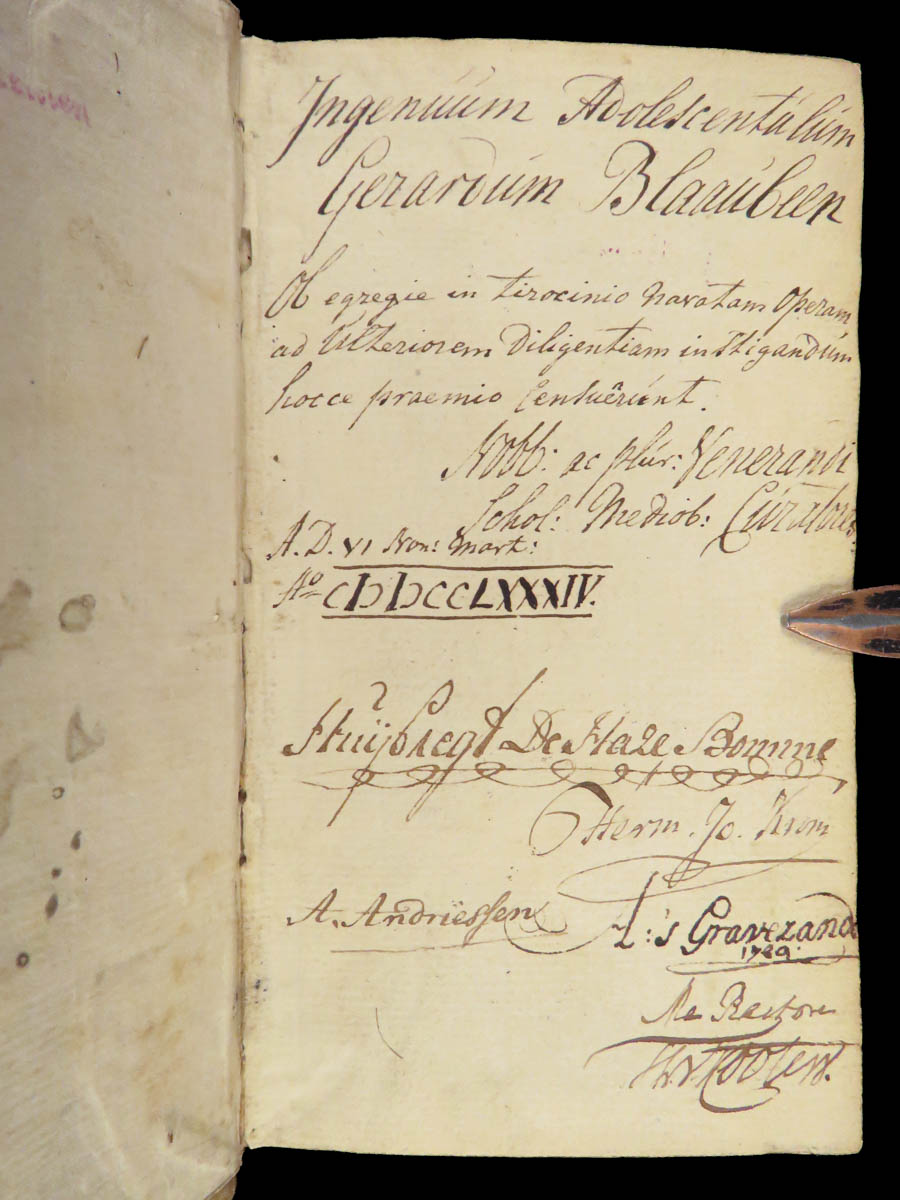 Ingenuum Adolescentulum
Gerardum Blaaubeen
Ob egregie in tirocinio navatam Operam
ad Ulteriorem Diligentiam instigandum
hocce praemio Censuêrunt.
Nobb: ac plur: Venerandi
Schol: Mediob: Curatores
A. D. VI Non: Mart:
Aº CIƆIƆCCLXXXIV.
Huijbregt De Haze Bomme
Herm. Jo. Krom
A. Andriessen
L: 's Gravezande
Me Rectore